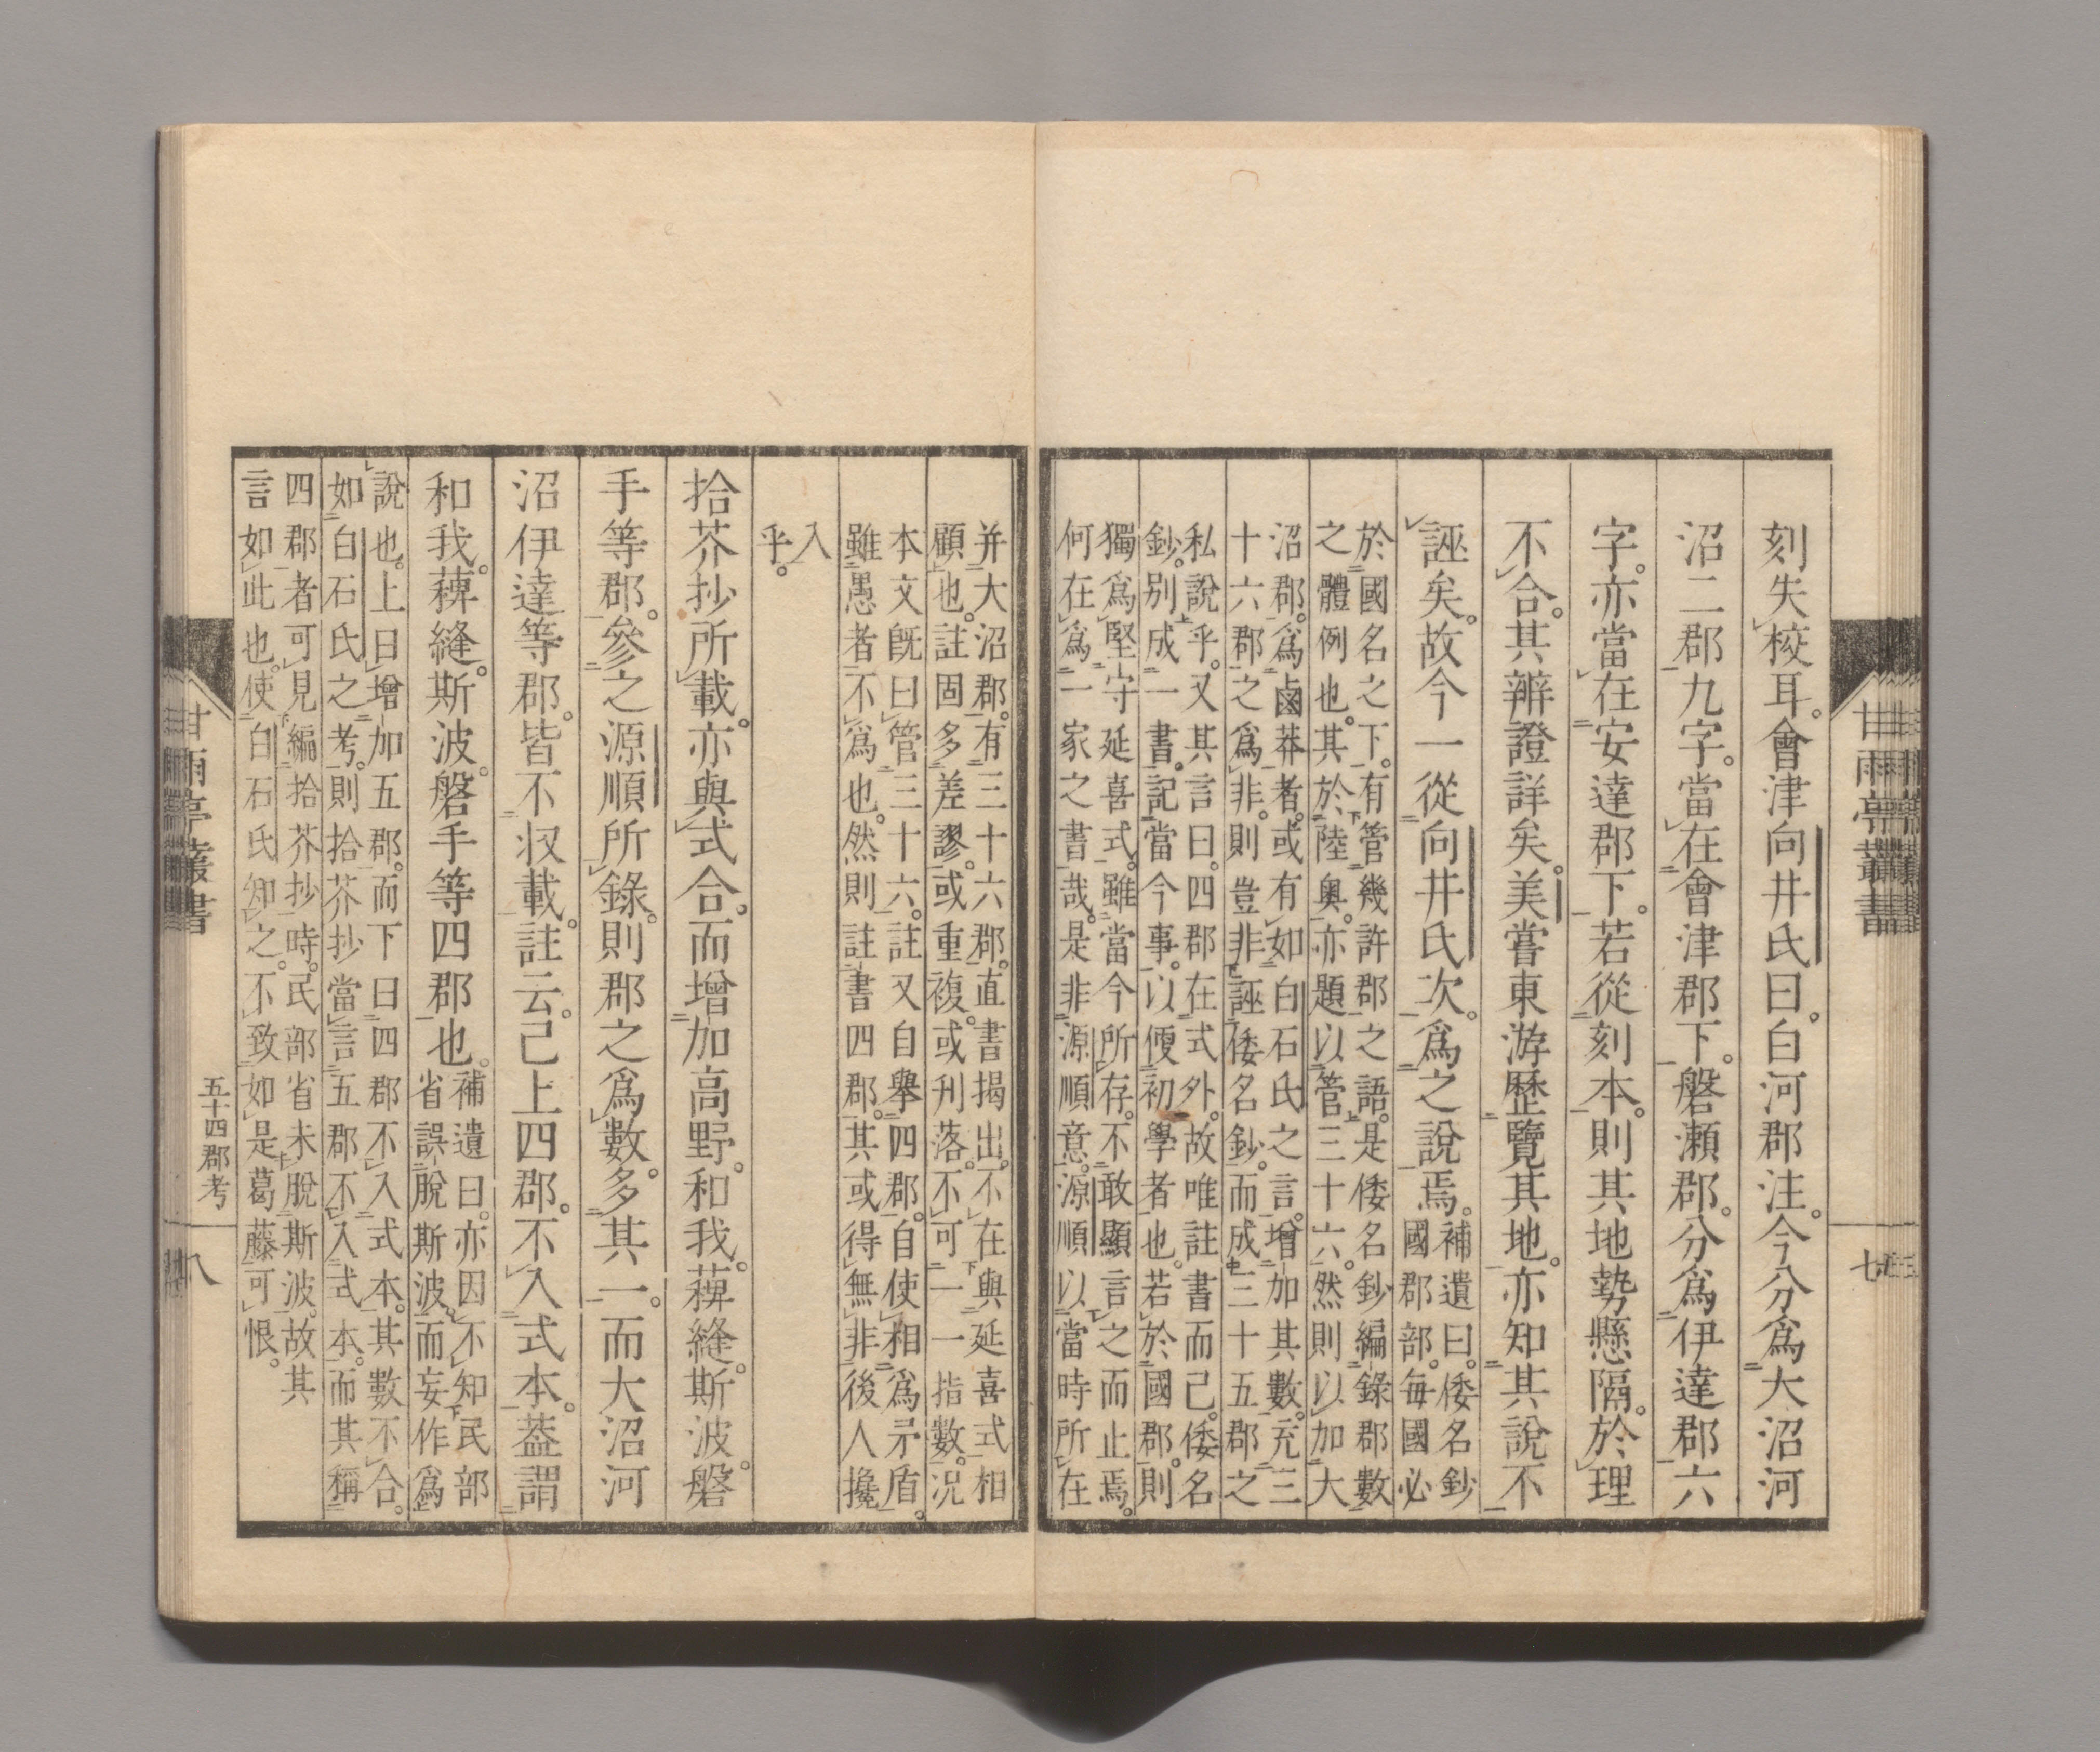 刻失校耳。會津向井氏曰。白河郡注。今分爲大沼河
沼二郡九字。當在會津郡下。磐瀬郡。分爲伊達郡六
字。亦當在安達郡下。若從刻本。則其地勢懸隔。於理
不合。其辨證詳矣。美嘗東游歴覽其地。亦知其說不
誣矣。故今一從向井氏次。爲之說焉。
補遺曰。倭名鈔
國郡部。每國必
於國名之下。有管幾許郡之語。是倭名鈔編錄郡數
之體例也。其於陸奥。亦題以管三十六。然則以加大
沼郡。爲鹵莽者。或有如白石氏之言。增加其數。充三
十六郡之爲非。則豈非誣倭名鈔。而成三十五郡之
私說乎。又其言曰。四郡在式外。故唯註書而已。倭名
鈔。別成一書。記當今事。以便初學者也。若於國郡。則
獨爲堅守延喜式。雖當今所存。不敢顯言之而止焉。
何在爲一家之書哉。是非源順意。源順以當時所在
并大沼郡。有三十六郡。直書揭出。不在與延喜式相
顧也。註固多差謬。或重複。或刋落。不可一一指數。况
本文既曰管三十六。註又自舉四郡。自使相爲矛盾。
雖愚者不爲也。然則註書四郡。其或得無非後人攙
入
乎。
拾芥抄所載。亦與式合。而增加高野。和我。稗縫。斯波。磐
手等郡。參之源順所錄。則郡之爲數。多其一。而大沼河
沼伊達等郡。皆不収載。註云。已上四郡。不入式本。葢謂
和我。稗縫。斯波。磐手等四郡也。
補遺曰。亦因不知民部
省誤脫斯波。而妄作爲
說也。上曰增加五郡。而下曰四郡不入式本。其數不合。
如白石氏之考。則拾芥抄當言五郡不入式本。而其稱
四郡者可見編拾芥抄時。民部省未脫斯波。故其
言如此也。使白石氏知之。不致如是葛藤可恨。
甘雨亭叢書
七
甘雨亭叢書
五十四郡考
八